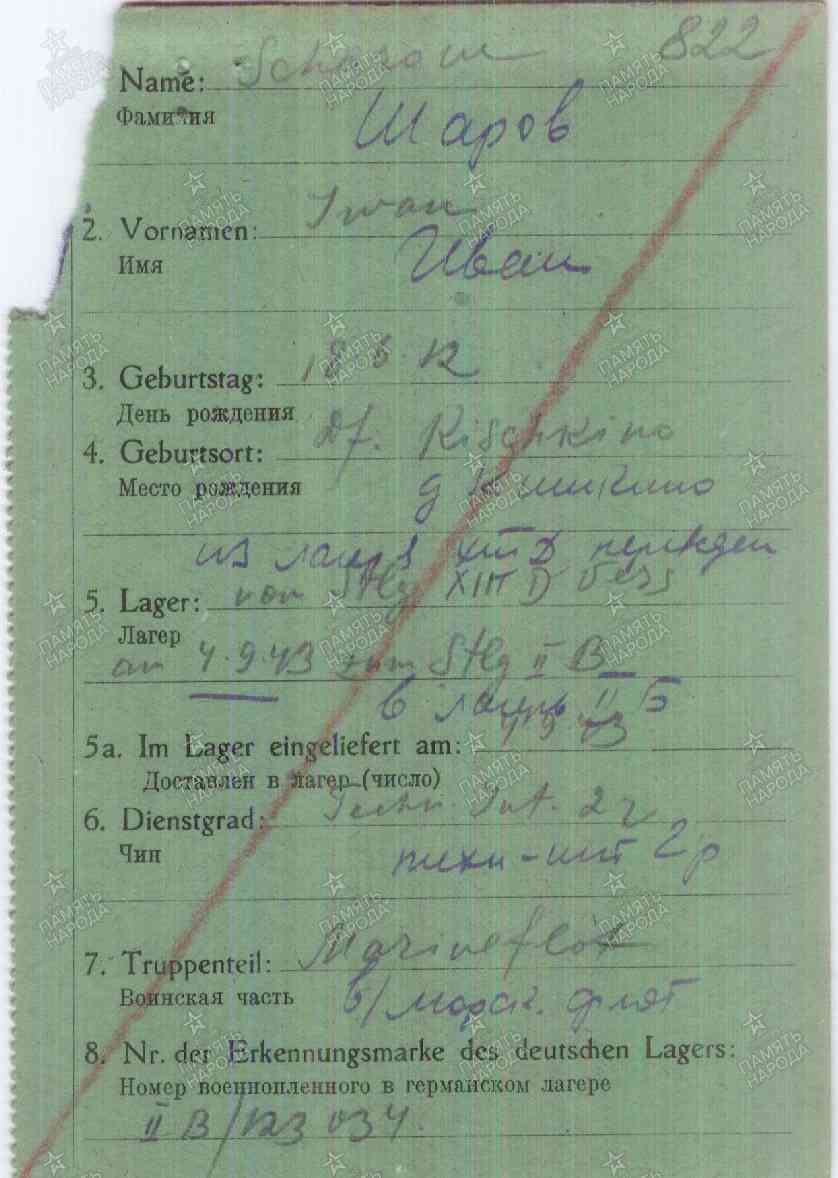 Scharow 822
Name:
Фамилия
Шаров
2. Vornamen: Iwan
Имя
Иван
3. Geburtstag: 18 6. 12
День рождения
4. Geburtsort: Df. Kischkino
Место рождения
д Кишкино
из лагеря XIII D
5. Lager: von Stlg XIII D vers
Лагерь
am 4.9.43 zum Stlg II B
в лагерь II Б
4 9 43
5a. Im Lager eingeliefert am:
Доставлен в лагер (число)
6. Dienstgrad: Techn. Int. 2 r
Чин
техн-инт 2 р
7. Truppenteil: Marineflot
Воинская часть
в/морск. флот
8. Nr. der Erkennungsmarke des deutschen Lagers:
Номер военнопленного в германском лагере
II B/123 034.
ПАМЯТЬ НАРОДА